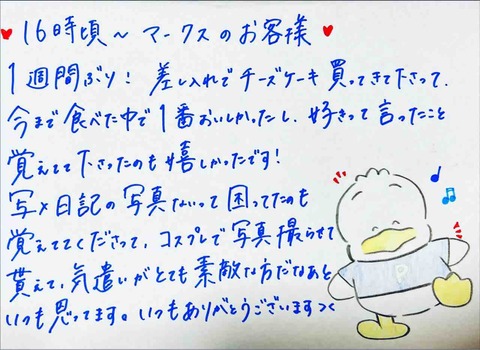 ♥ 16時頃〜 マークスのお客様 ♥
1週間ぶり! 差し入れでチーズケーキ買ってきて下さって、
今まで食べた中で1番おいしかったし、好きって言ったこと
覚えてて下さったのも嬉しかったです!
写メ日記の写真ないって困ってたのも
覚えててくださって、コスプレで写真撮らせて
貰えて、気遣いがとても素敵な方だなあと
いつも思ってます。いつもありがとうございますつく
P